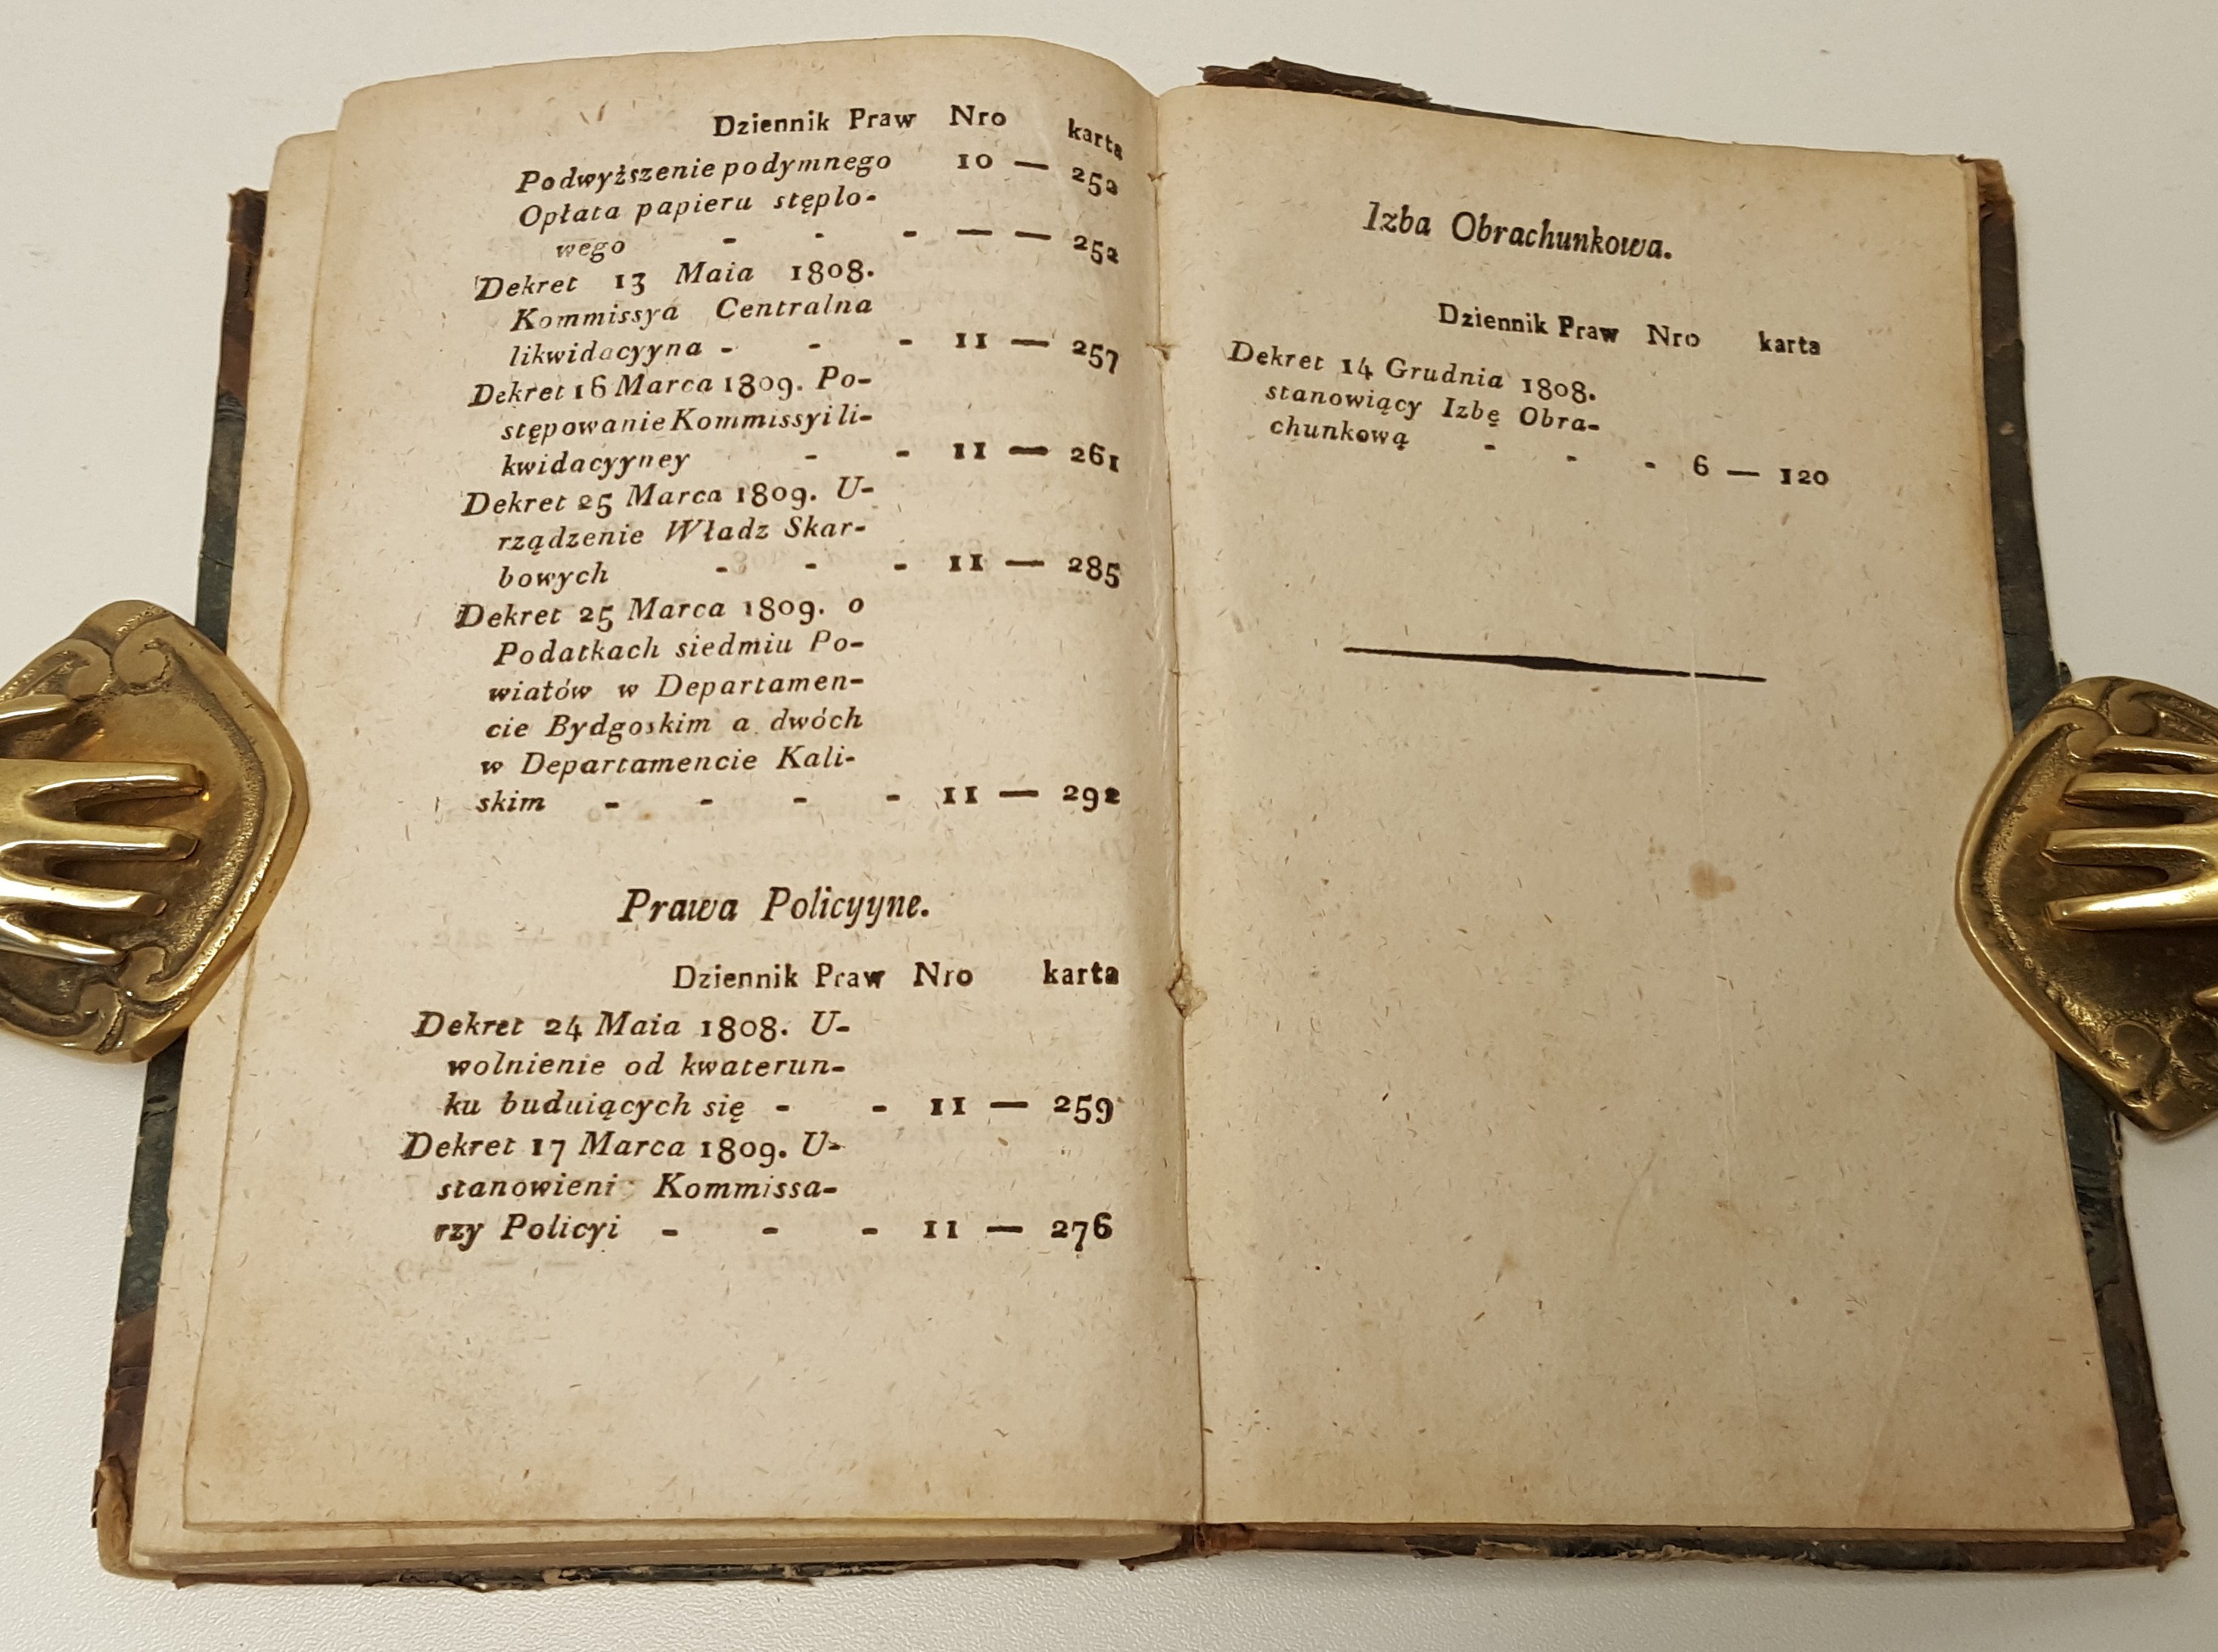 Dziennik Praw Nro karta
Podwyższenie podymnego 10 — 252
Opłata papieru stęplo-
wego - - - — — 252
Dekret 13 Maia 1808.
Kommissya Centralna
likwidacyyna - - - 11 — 257
Dekret 16 Marca 1809. Po-
stępowanie Kommissyi li-
kwidacyyney - - 11 — 261
Dekret 25 Marca 1809. U-
rządzenie Władz Skar-
bowych - - - 11 — 285
Dekret 25 Marca 1809. o
Podatkach siedmiu Po-
wiatów w Departamen-
cie Bydgoskim a dwóch
w Departamencie Kali-
skim - - - - 11 — 292
Prawa Policyyne.
Dziennik Praw Nro karta
Dekret 24 Maia 1808. U-
wolnienie od kwaterun-
ku buduiących się - - 11 — 259
Dekret 17 Marca 1809. U-
stanowieni Kommissa-
rzy Policyi - - - 11 — 276
Izba Obrachunkowa.
Dziennik Praw Nro karta
Dekret 14 Grudnia 1808.
stanowiący Izbę Obra-
chunkową - - - 6 — 120